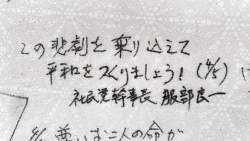 この悲劇を乗り越えて
平和をつくりましょう! (4/5)
社民党幹事長 服部良一
尊い二人の命が